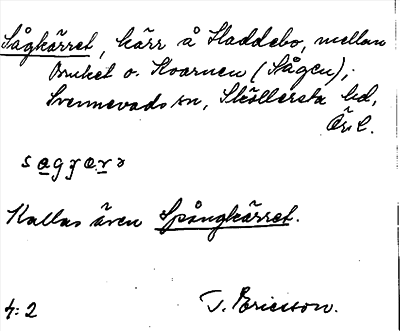 Sågkärret, kärr å Haddebo, mellan
Bruket o. Kvarnen (Sågen);
Svennevads sn, Sköllersta hd,
Ör. l.
Kallas även Spångkärret.
4:2 T. Ericsson.